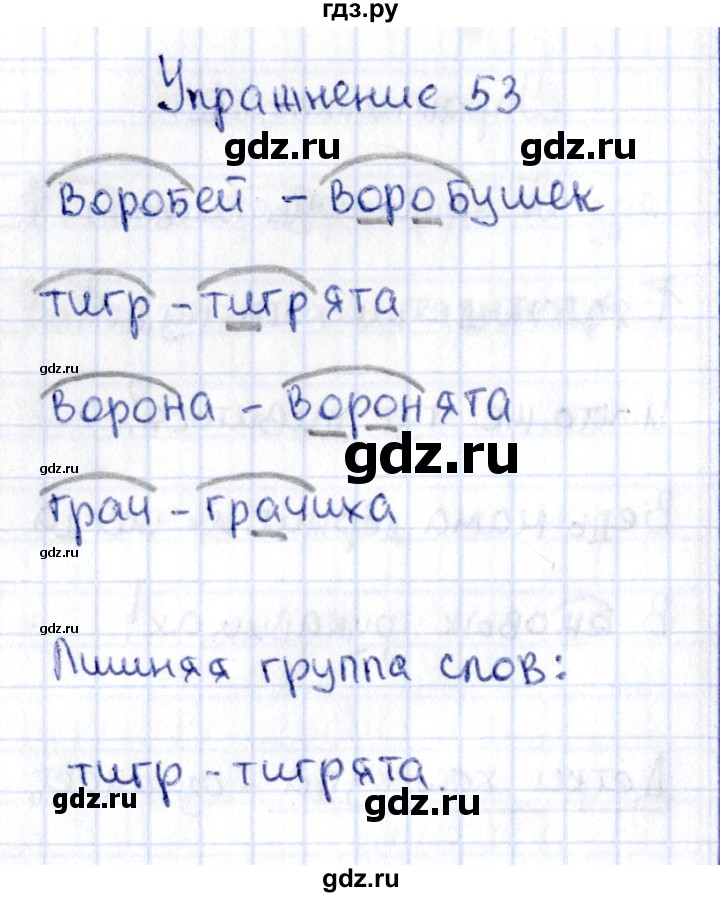 гдз.ру
Упражнение 53
gdz.ru gdz.ru
воробей - воробушек
тигр - тигрята
gdz.ru
gdz.ru
ворона - воронята
gdz.ru
gdz.ru
грач - грачиха
gdz.ru
gdz.ru
Лишняя группа слов:
тигр - тигрята.
gdz.ru gdz.ru
gdz.ru